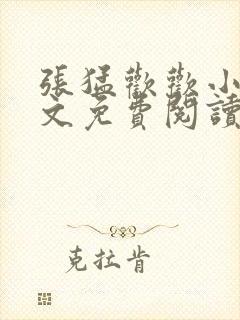 張猛歡歡小
文免費閱讀
克拉肯